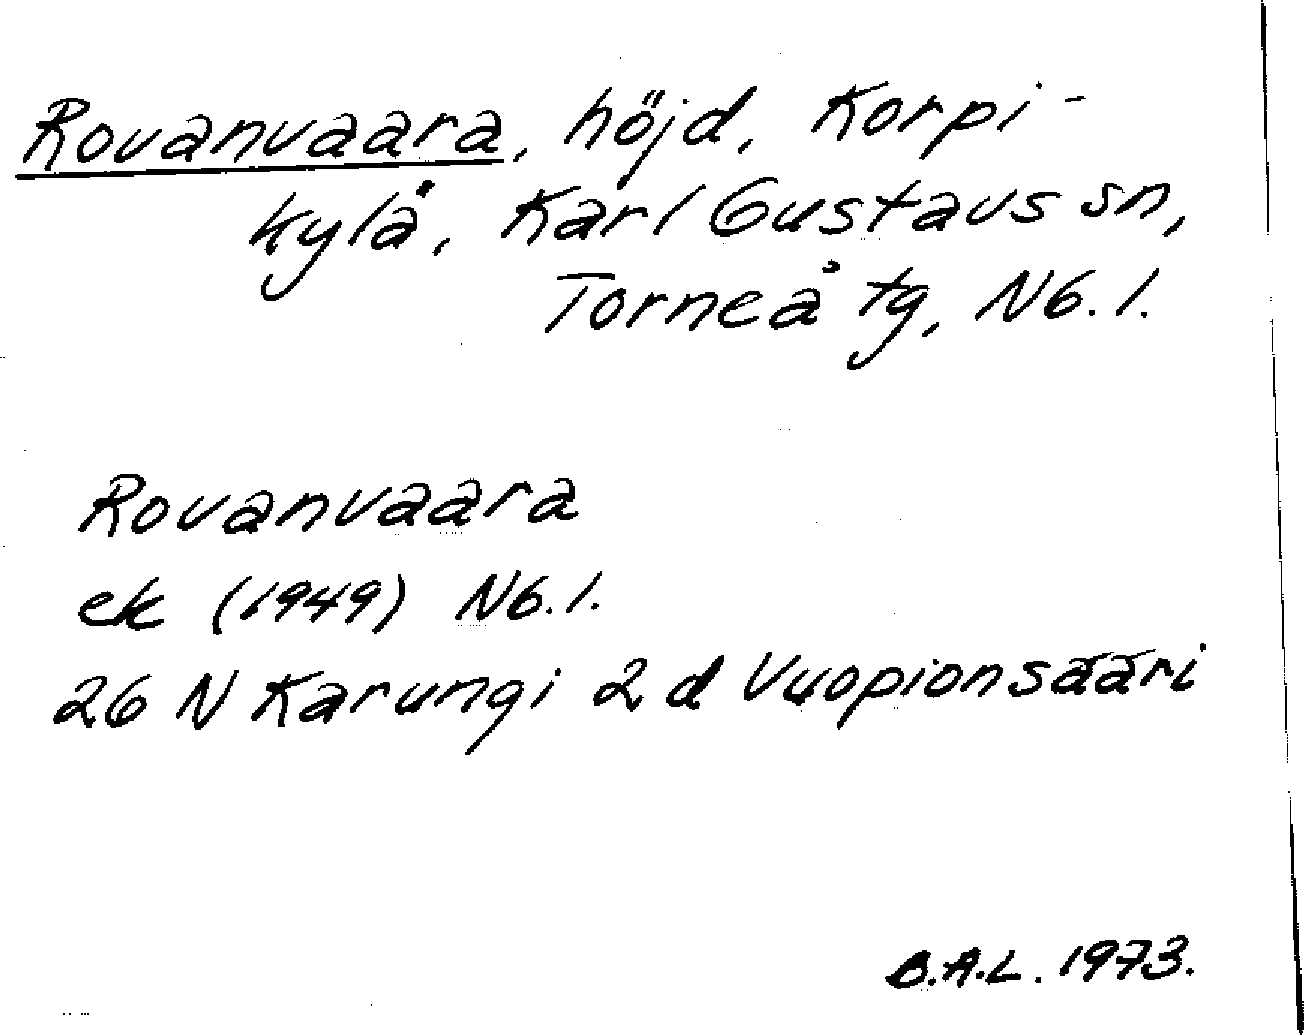 Rovanvaara, höjd, Korpi-
kylå, Karl Gustavs sn,
Torneå tg, N6.1.
Rovanvaara
ek (1949) N6.1.
26 N Karungi 2 d Vuopionsääri
B.A.L. 1973.